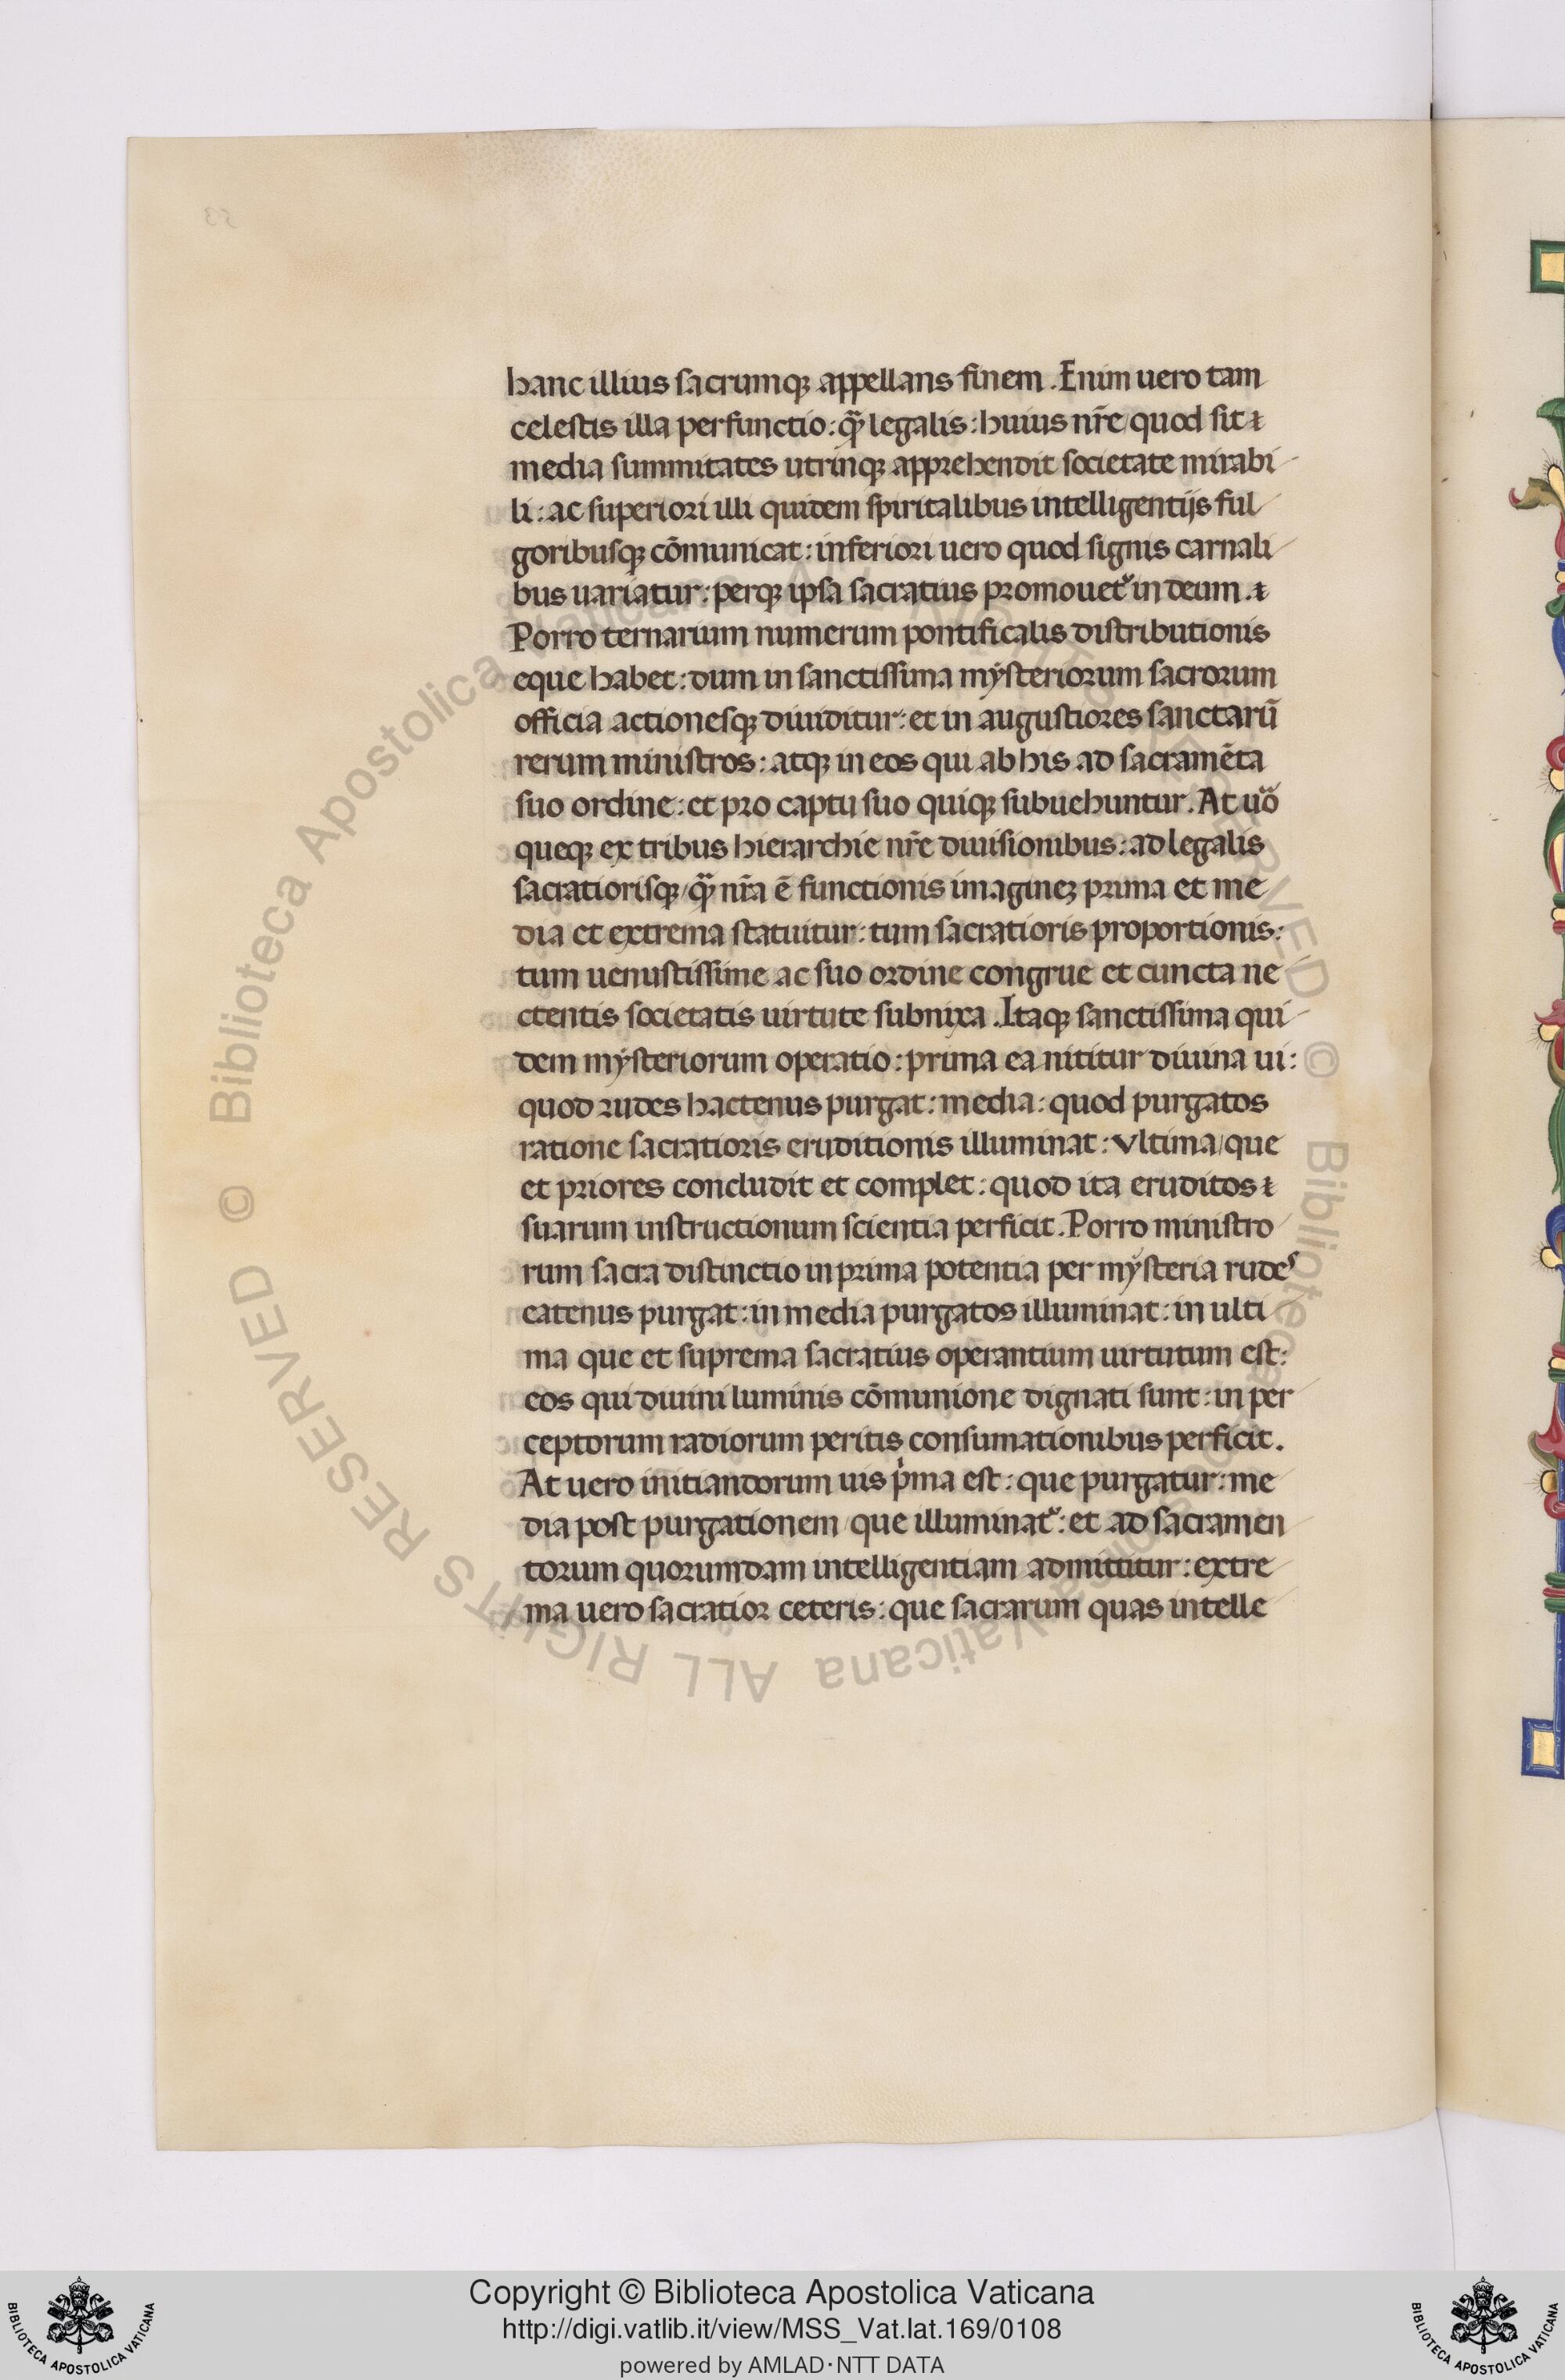 hanc illius sacrumqꝫ appellans finem. Enim uero tam
celestis illa perfunctio: qᷓ legalis: huius nr̄e quod sit ⁊
media summitates utrinqꝫ apprehendit societate mirabi
li: ac superiori illi quidem spiritalibus intelligentijs ful
goribusqꝫ cōmunicat: inferiori uero quod signis carnali
bus uariatur: perqꝫ ipsa sacratius promouet᷑ in deum. ⁊
Porro ternarium numerum pontificalis distributionis
eque habet: dum in sanctissima mẏsteriorum sacrorum
officia actionesqꝫ diuiditur: et in augustiores sanctarū
rerum ministros: atqꝫ in eos qui ab his ad sacramēta
suo ordine: et pro captu suo quiqꝫ subuehuntur. At uo᷑
queqꝫ ex tribus hierarchie nr̄e diuisionibus: ad legalis
sacratiorisqꝫ/qᷓ nr̄a ē functionis imagineꝫ prima et me
dia et extrema statuitur: tum sacratioris proportionis:
tum uenustissime ac suo ordine congrue et cuncta ne
ctentis societatis uirtute subnixa. Itaqꝫ sanctissima qui
dem mẏsteriorum operatio: prima ea nititur diuina ui:
quod rudes hactenus purgat: media: quod purgatos
ratione sacratioris eruditionis illuminat: Vltima/que
et priores concludit et complet: quod ita eruditos ⁊
suarum instructionum scientia perficit. Porro ministro
rum sacra distinctio in prima potentia per mẏsteria rudes
eatenus purgat: in media purgatos illuminat: in ulti
ma que et suprema sacratius operantium uirtutum est:
eos qui diuini luminis cōmunione dignati sunt: in per
ceptorum radiorum peritis consumationibus perficit.
At uero initiandorum uis pͥma est: que purgatur: me
dia post purgationem/que illuminat᷑: et ad sacramen
torum quorumdam intelligentiam admittitur: extre
ma uero sacratior ceteris: que sacrarum quas intelle
© Biblioteca Apostolica Vaticana ALL RIGHTS RESERVED
© Biblioteca Apostolica Vaticana ALL RIGHTS RESERVED
Copyright © Biblioteca Apostolica Vaticana
http://digi.vatlib.it/view/MSS_Vat.lat.169/0108
powered by AMLAD·NTT DATA
BIBLIOTECA APOSTOLICA VATICANA
BIBLIOTECA APOSTOLICA VATICANA